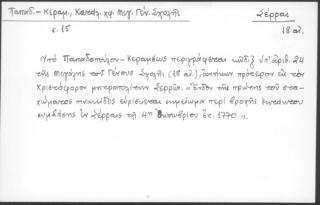 Παπαδ.-Κεραμ., Κατάλ. χφ. Μεγ. Γέν. Σχολῆς
Σέρραι
σ. 15
18 αἰ.
Ὑπὸ Παπαδοπούλου-Κεραμέως περιγράφεται κῶδιξ ὑπ' ἀριθ. 24
τῆς Μεγάλης τοῦ Γένους Σχολῆς (18 αἰ.), ἀνήκων πρότερον εἰς τὸν
Χριστόφορον μητροπολίτην Σερρῶν. "Ἔνδον τῆς πρώτης τοῦ στα-
χώματος πινακίδος εὑρίσκεται σημείωμα περὶ βροχῆς
συμβάσης ἐν Σέρραις τῇ 4ῃ Ὀκτωβρίου ἔτ. 1770".